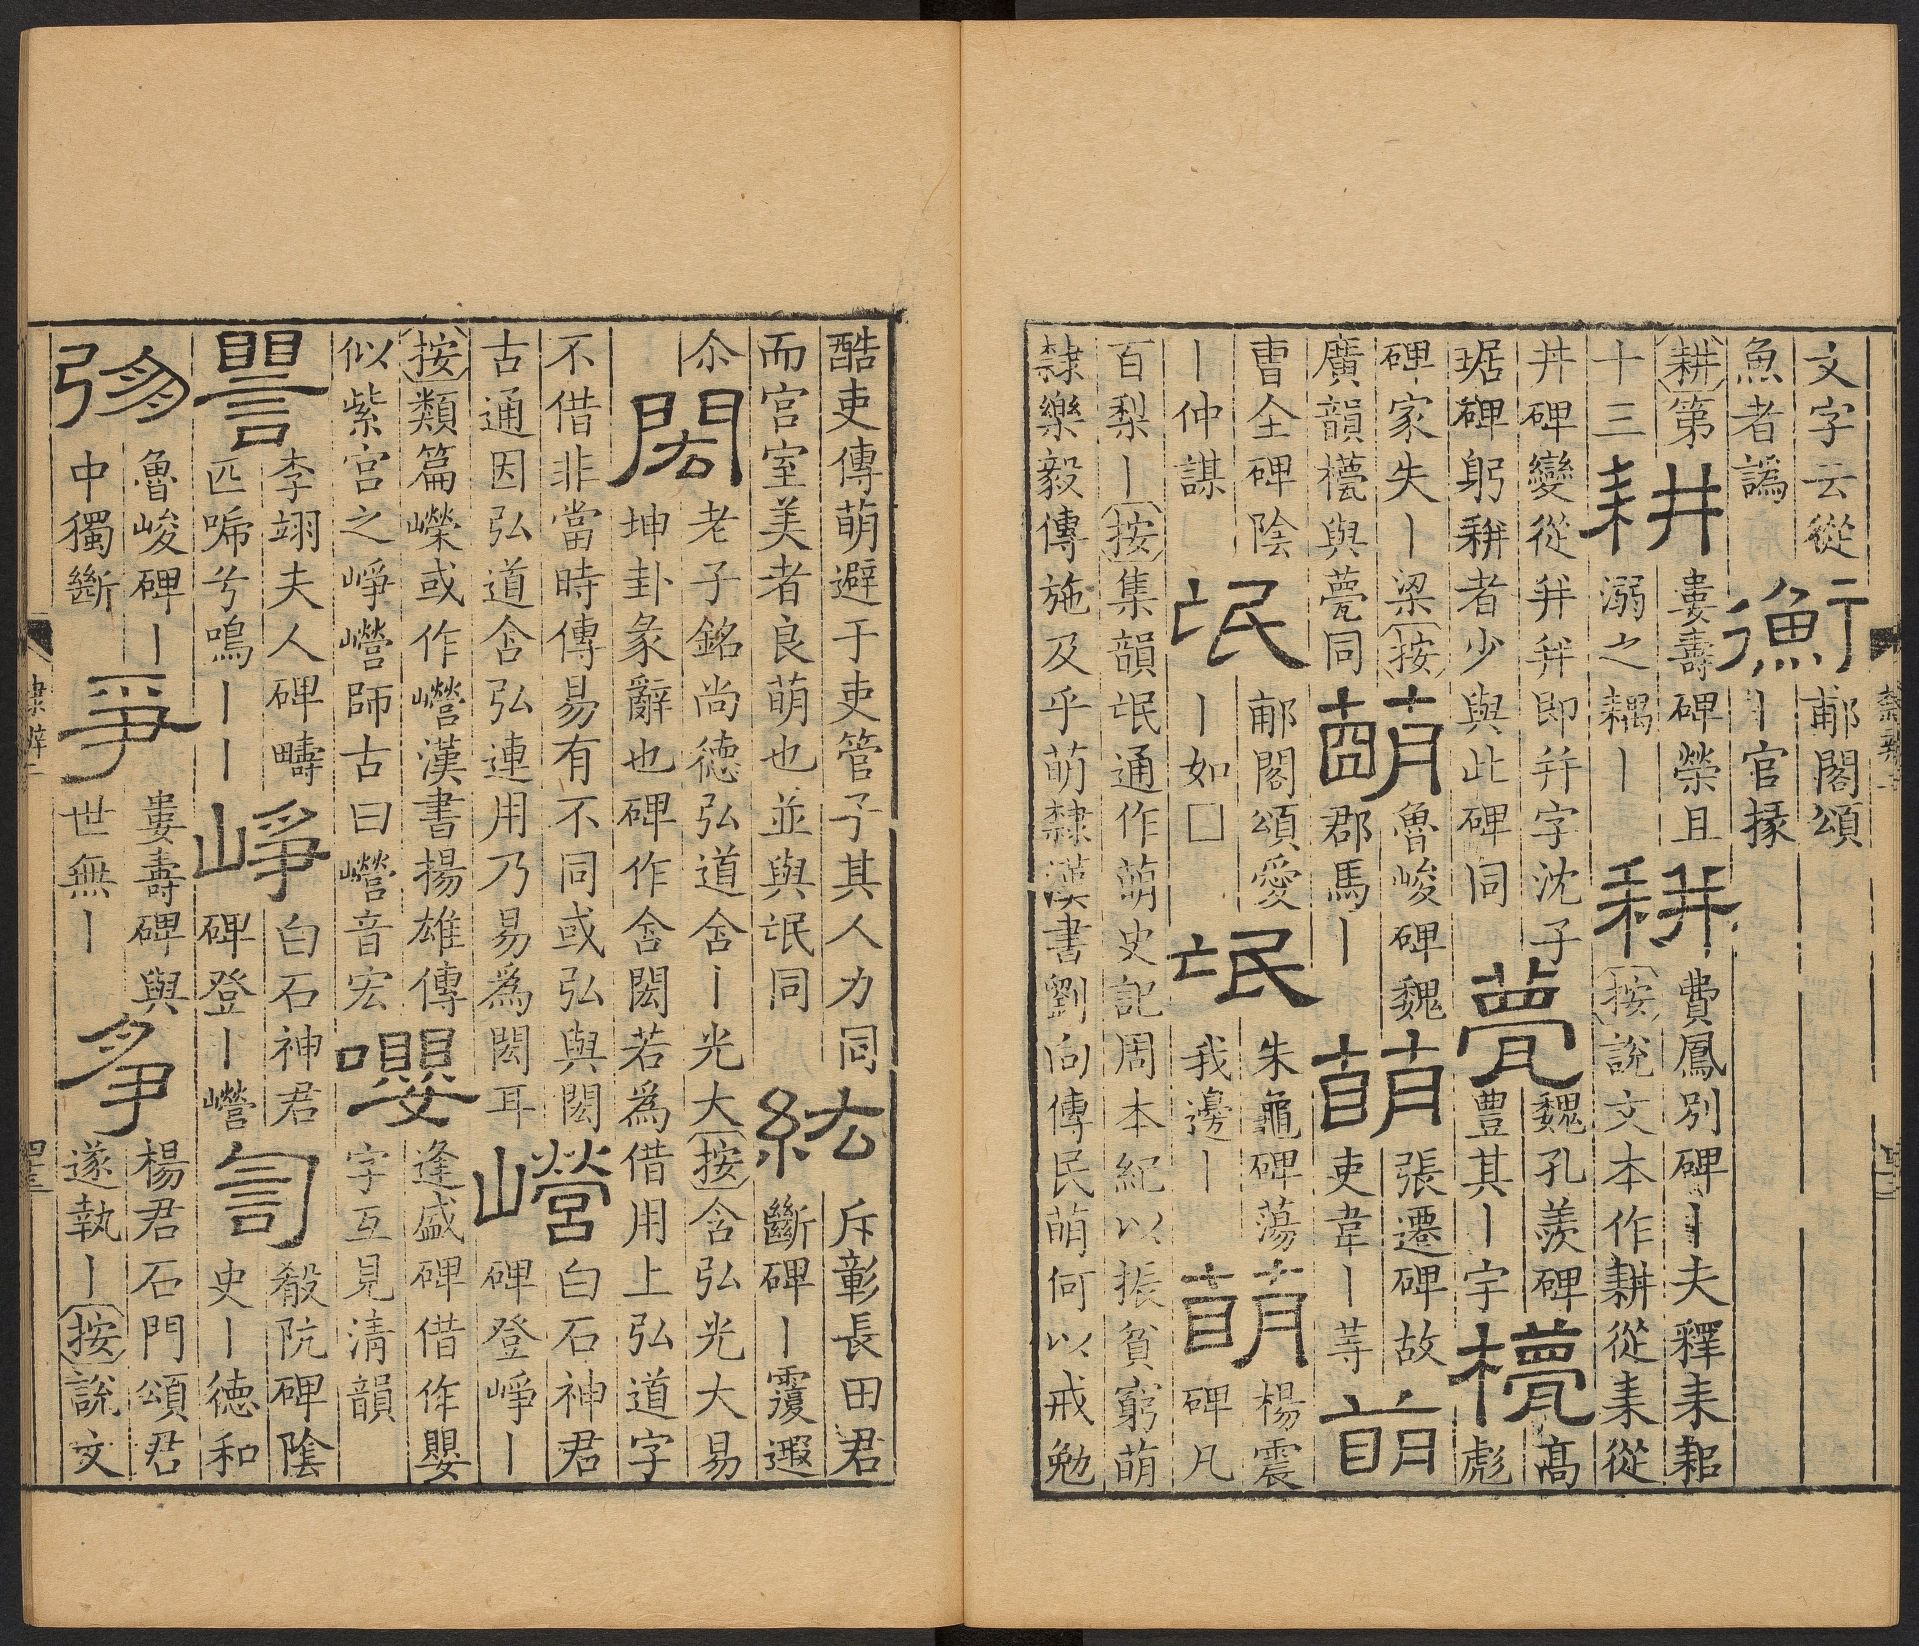 文字云從
魚者譌
衡
郙閣頌
丨官掾
耕第
十三
耕
婁壽碑榮且
溺之耦丨
耕
費鳳別碑丨夫釋耒耜
按說文本作耕從耒從
井碑變從幷幷即幷字沈子
琚碑躬耕者少與此碑同
甍
魏孔羨碑
豊其丨宇
櫋
高
彪
碑家失丨梁按
廣韻與甍同
萌
魯峻碑魏
郡馬丨
萌
張遷碑故
吏韋丨等
萌
曹全碑陰
丨仲謀
氓
郙閣頌愛
丨如□
氓
朱龜碑蕩
我邊丨
萌
楊震
碑凡
百梨丨按集韻氓通作萌史記周本紀以振貧窮萌
隸樂毅傳施及乎萌隸漢書劉向傳民萌何以戒勉
酷吏傳萌避于吏管子其人力同
而宮室美者良萌也並與氓同
紘
斥彰長田君
斷碑丨覆遐
尒
閎
老子銘尚德弘道含丨光大按含弘光大易
坤卦彖辭也碑作含閎若為借用上弘道字
不借非當時傳易有不同或弘與閎
古通因弘道含弘連用乃易為閎耳
嶸
白石神君
碑登崢丨
按類篇嶸或作㘇漢書揚雄傳
似紫宮之崢㘇師古曰㘇音宏
嚶
逢盛碑借作嬰
字互見清韻
嚶
李翊夫人碑疇
匹啼兮鳴丨丨
崢
白石神君
碑登丨㘇
訇
殽阬碑陰
史丨德和
弸
魯峻碑丨
中獨斷
爭
婁壽碑與
世無丨
爭
楊君石門頌君
遂執丨按說文
隸辨